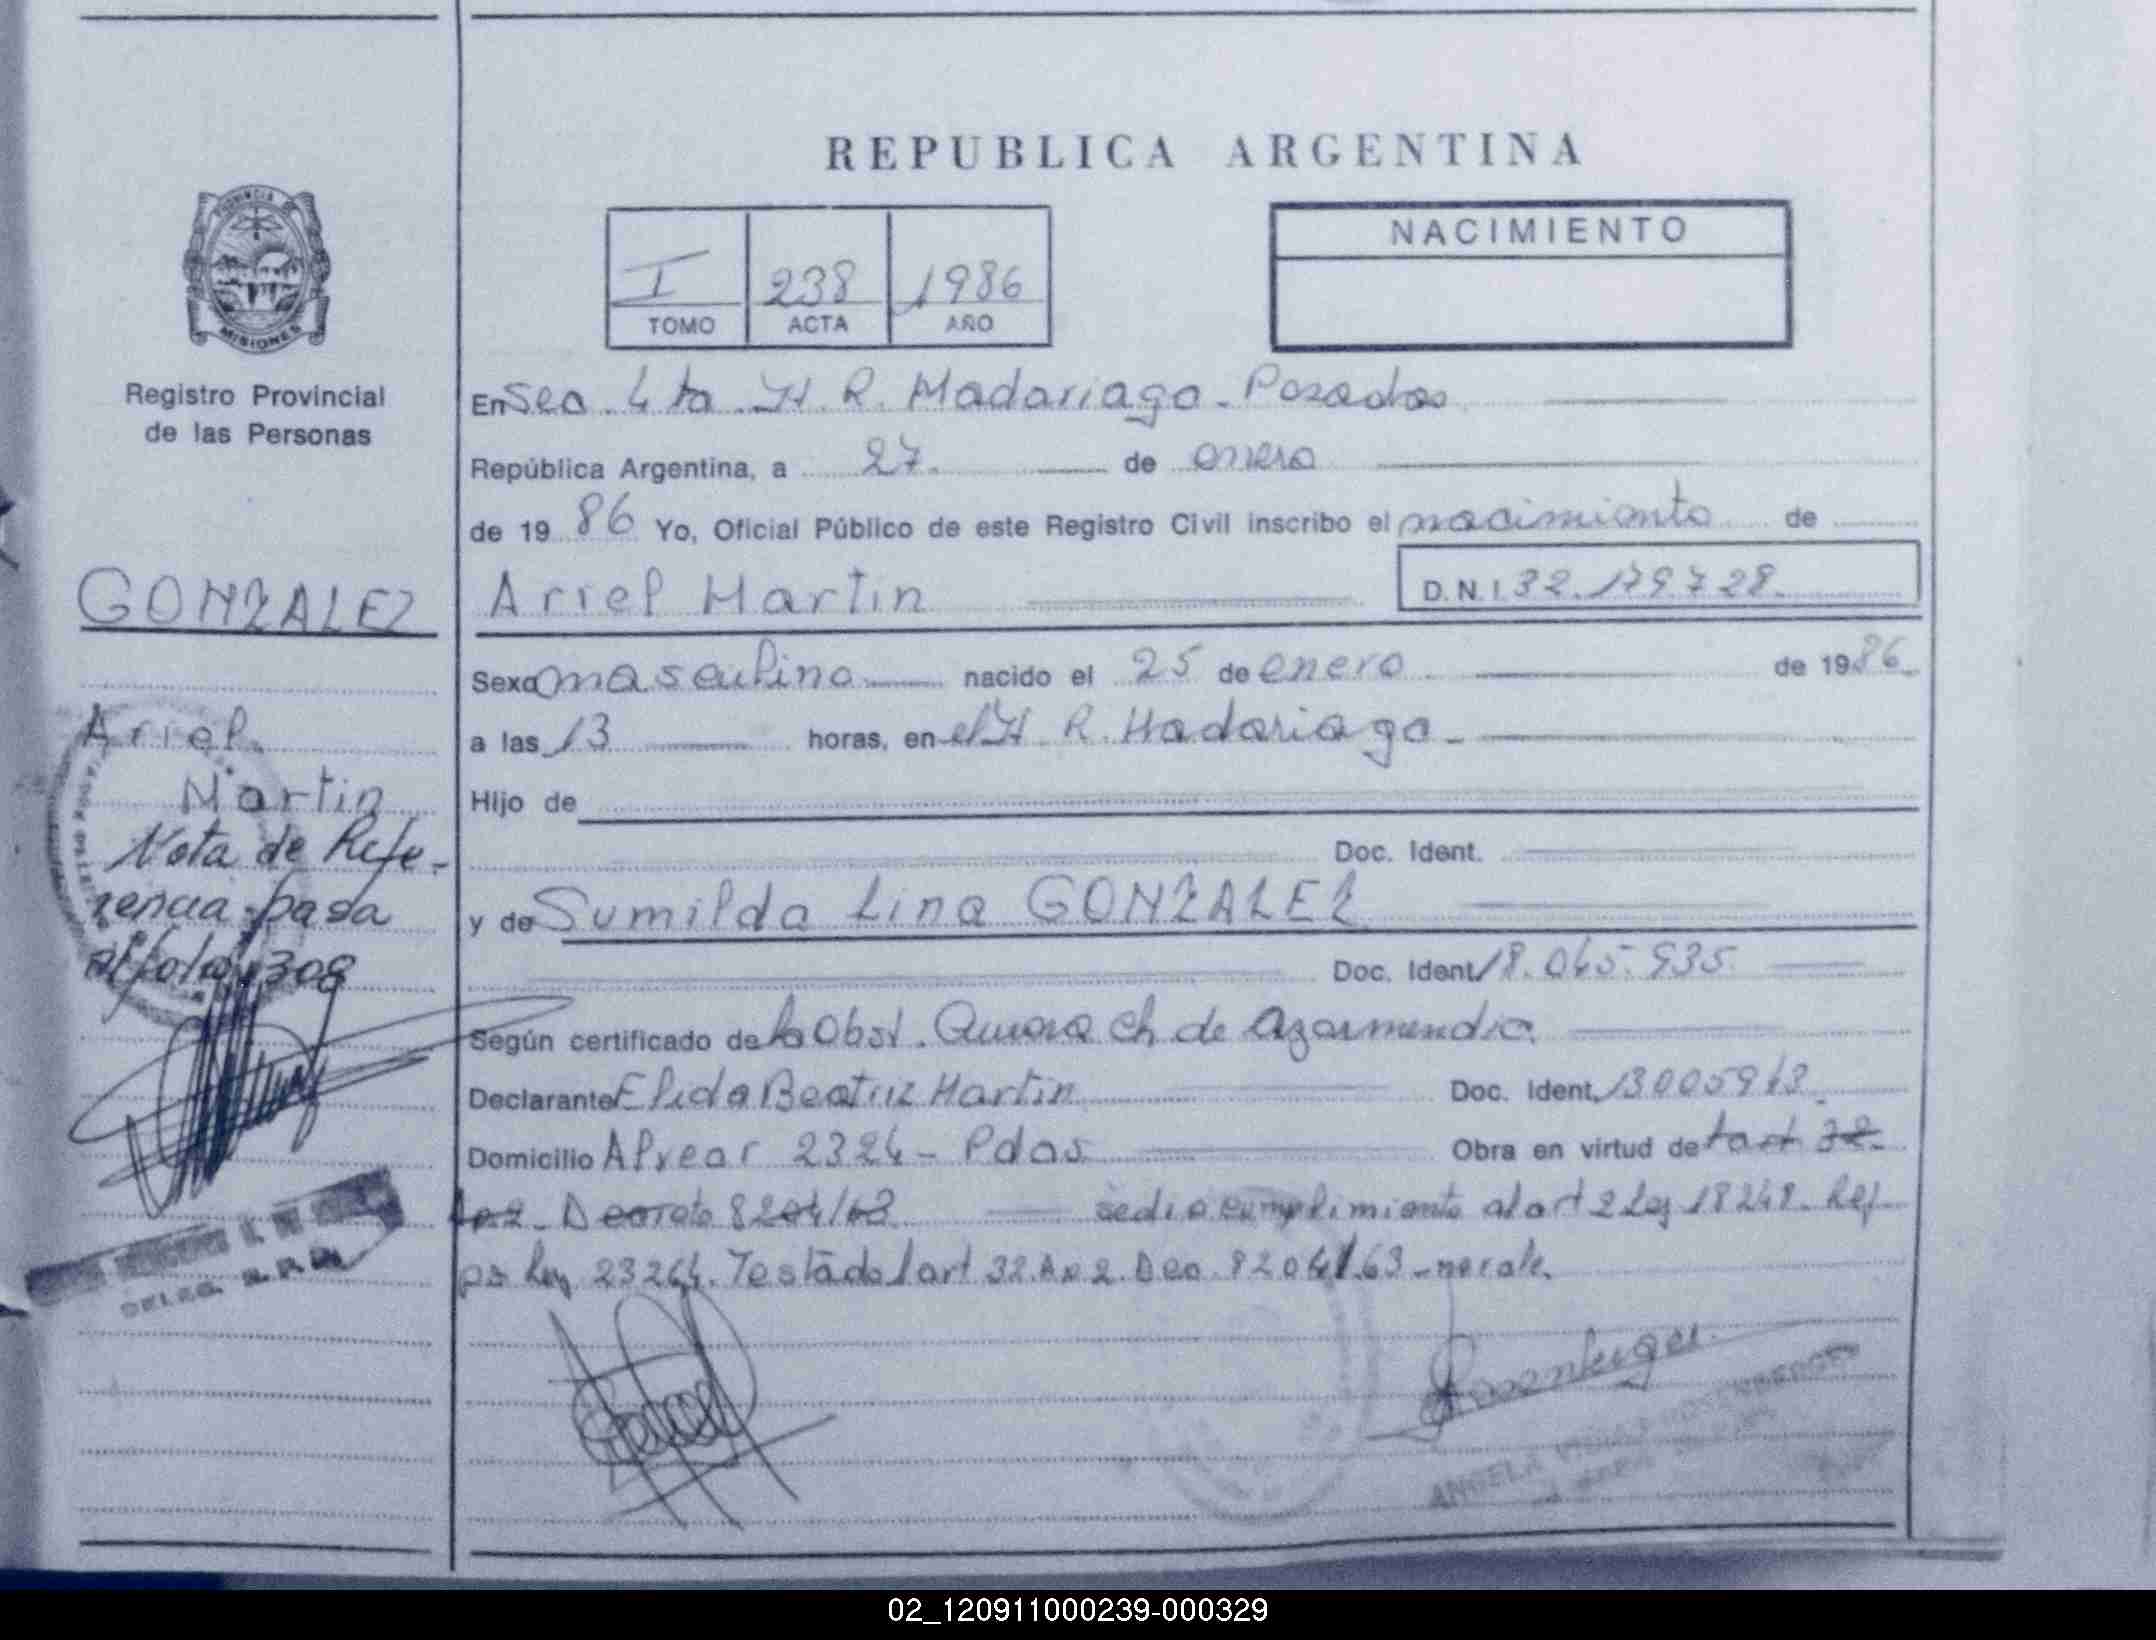 REPUBLICA ARGENTINA
PROVINCIA DE
MISIONES
Registro Provincial
de las Personas
I 238 1986
TOMO ACTA AÑO
NACIMIENTO
En Sec. 4ta H. R. Madariaga - Posadas
República Argentina, a 27 de enero
de 19 86 Yo, Oficial Público de este Registro Civil inscribo el nacimiento de
GONZALEZ
Ariel Martin
D.N.I. 32.179.728
Sexo masculino nacido el 25 de enero de 1986
Ariel
a las 13 horas, en el H R. Madariaga -
Martin
Hijo de
Nota de Refe-
rencia pasa
al folio 308
Doc. Ident.
y de Sumilda Lina GONZALEZ
Doc. Ident 18.045.935
Según certificado de la Obst. Aurora Ch de Azarmendia
Declarante Elida Beatriz Martin Doc. Ident. 13005913
Domicilio Alvear 2324 - Pdas Obra en virtud de l art 32
Ap 2 - Decreto 8204/63 se dio cumplimiento al art 2 Ley 18248 - Ref
ps Ley 23264. Testado l art 32 Ap 2. Dec. 8204/63 - no vale.
ANGELA